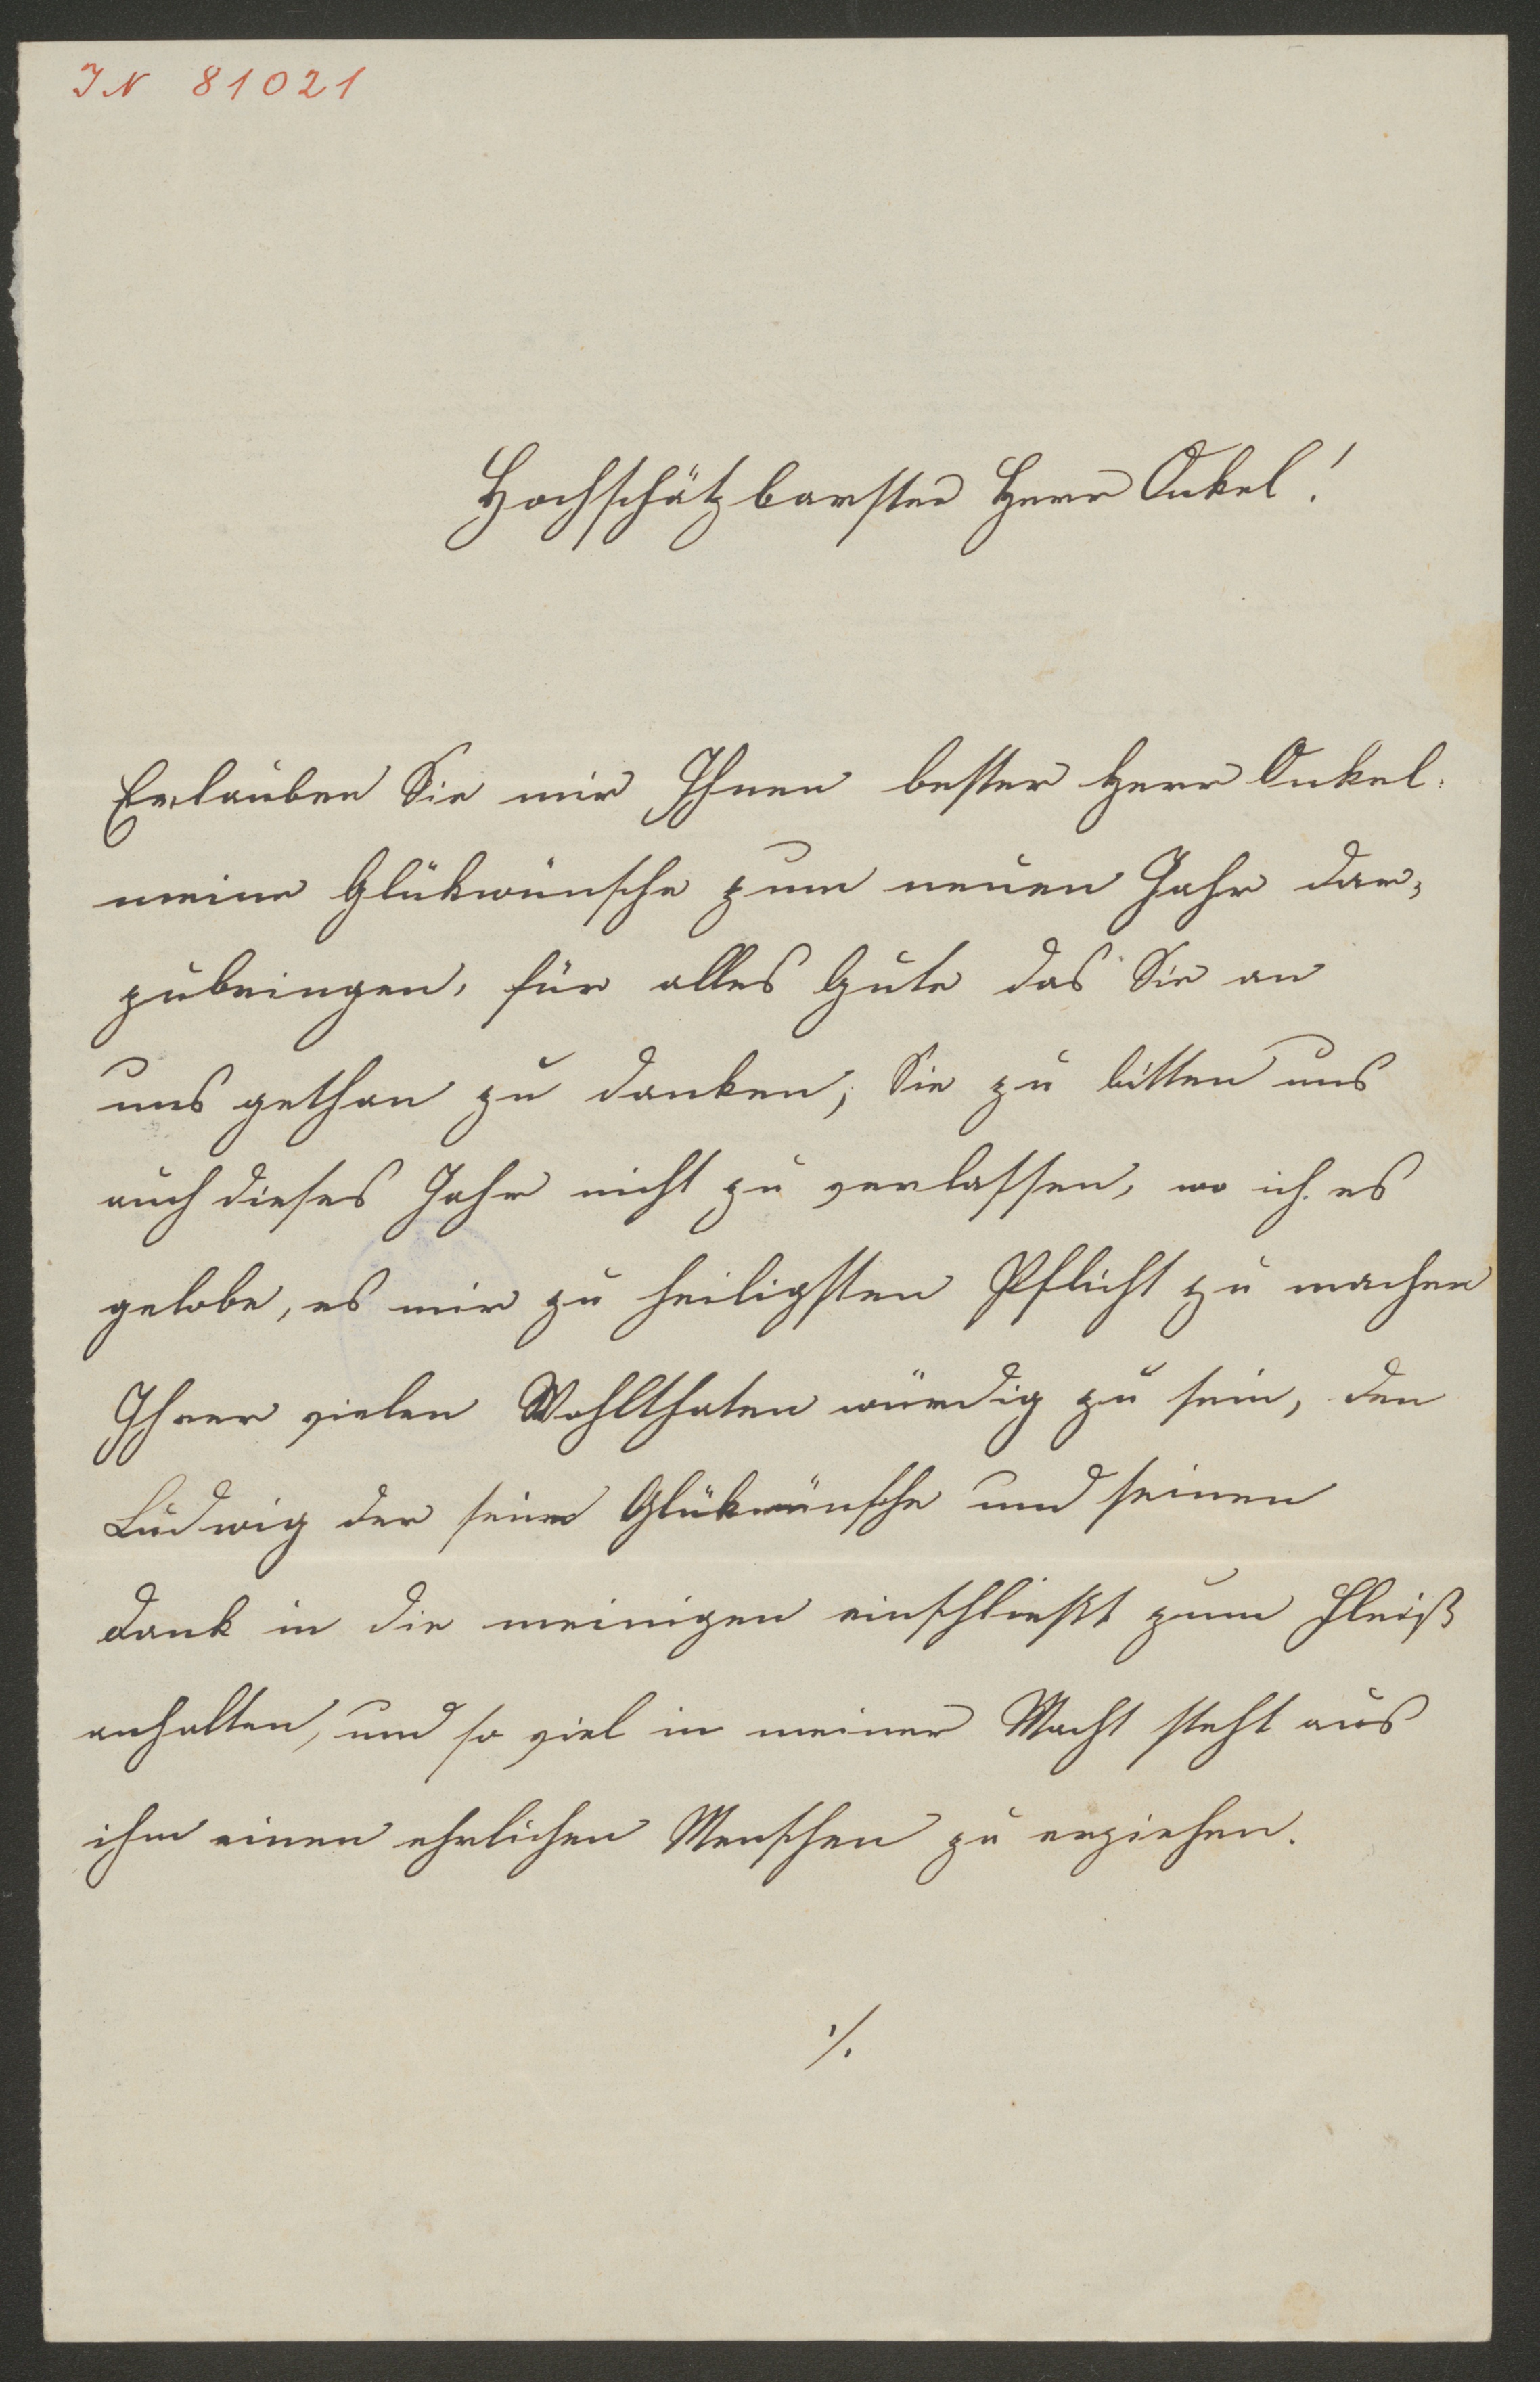 IN 81021
Hochschätzbarster Herr Onkel!
Erlauben Sie mir Ihnen bester Herr Onkel.
meine Glükwünsche zum neuen Jahr dar=
zubringen, für alles Gute das Sie an
uns gethan zu danken, Sie zu bitten uns
auch dieses Jahr nicht zu verlassen, wo ich es
gelobe, es mir zu heiligsten Pflicht zu machen
Ihrer vielen Wohlthaten würdig zu sein, den
Ludwig der seine Glükwünsche und seinen
Dank in die meinigen einschließt zum Fleiß
anhalten, und so viel in meiner Macht steht aus
ihm einen ehrlichen Menschen zu erziehen.
./.